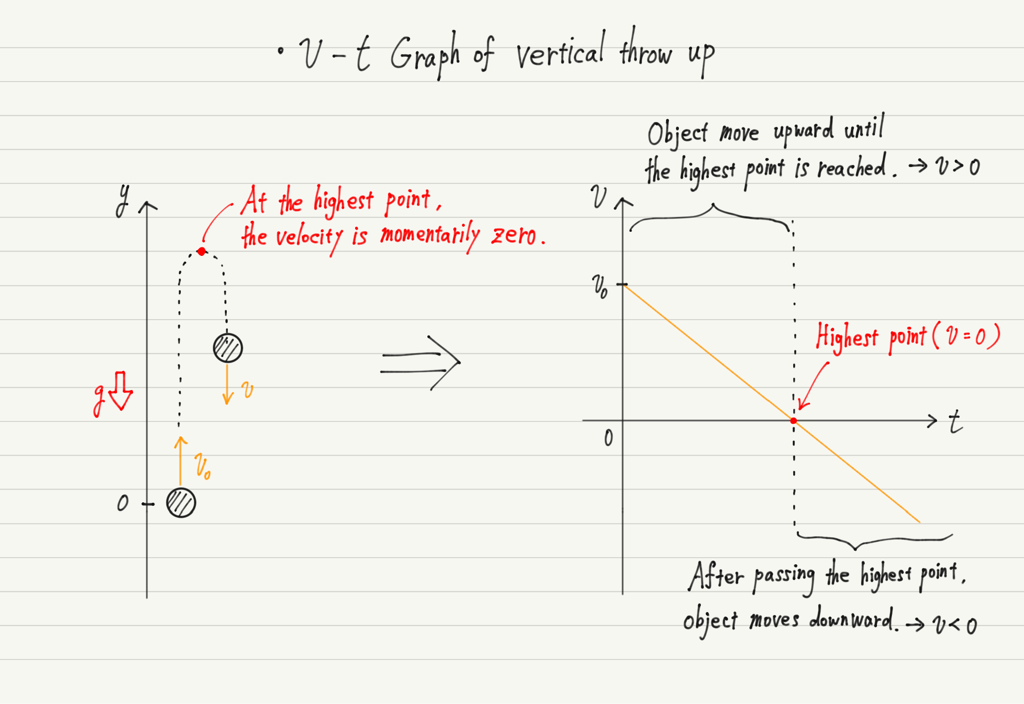 • v - t Graph of vertical throw up
y
At the highest point,
the velocity is momentarily zero.
g
v
v₀
0
Object move upward until
the highest point is reached. → v > 0
v
v₀
Highest point (v = 0)
0
t
After passing the highest point,
object moves downward. → v < 0